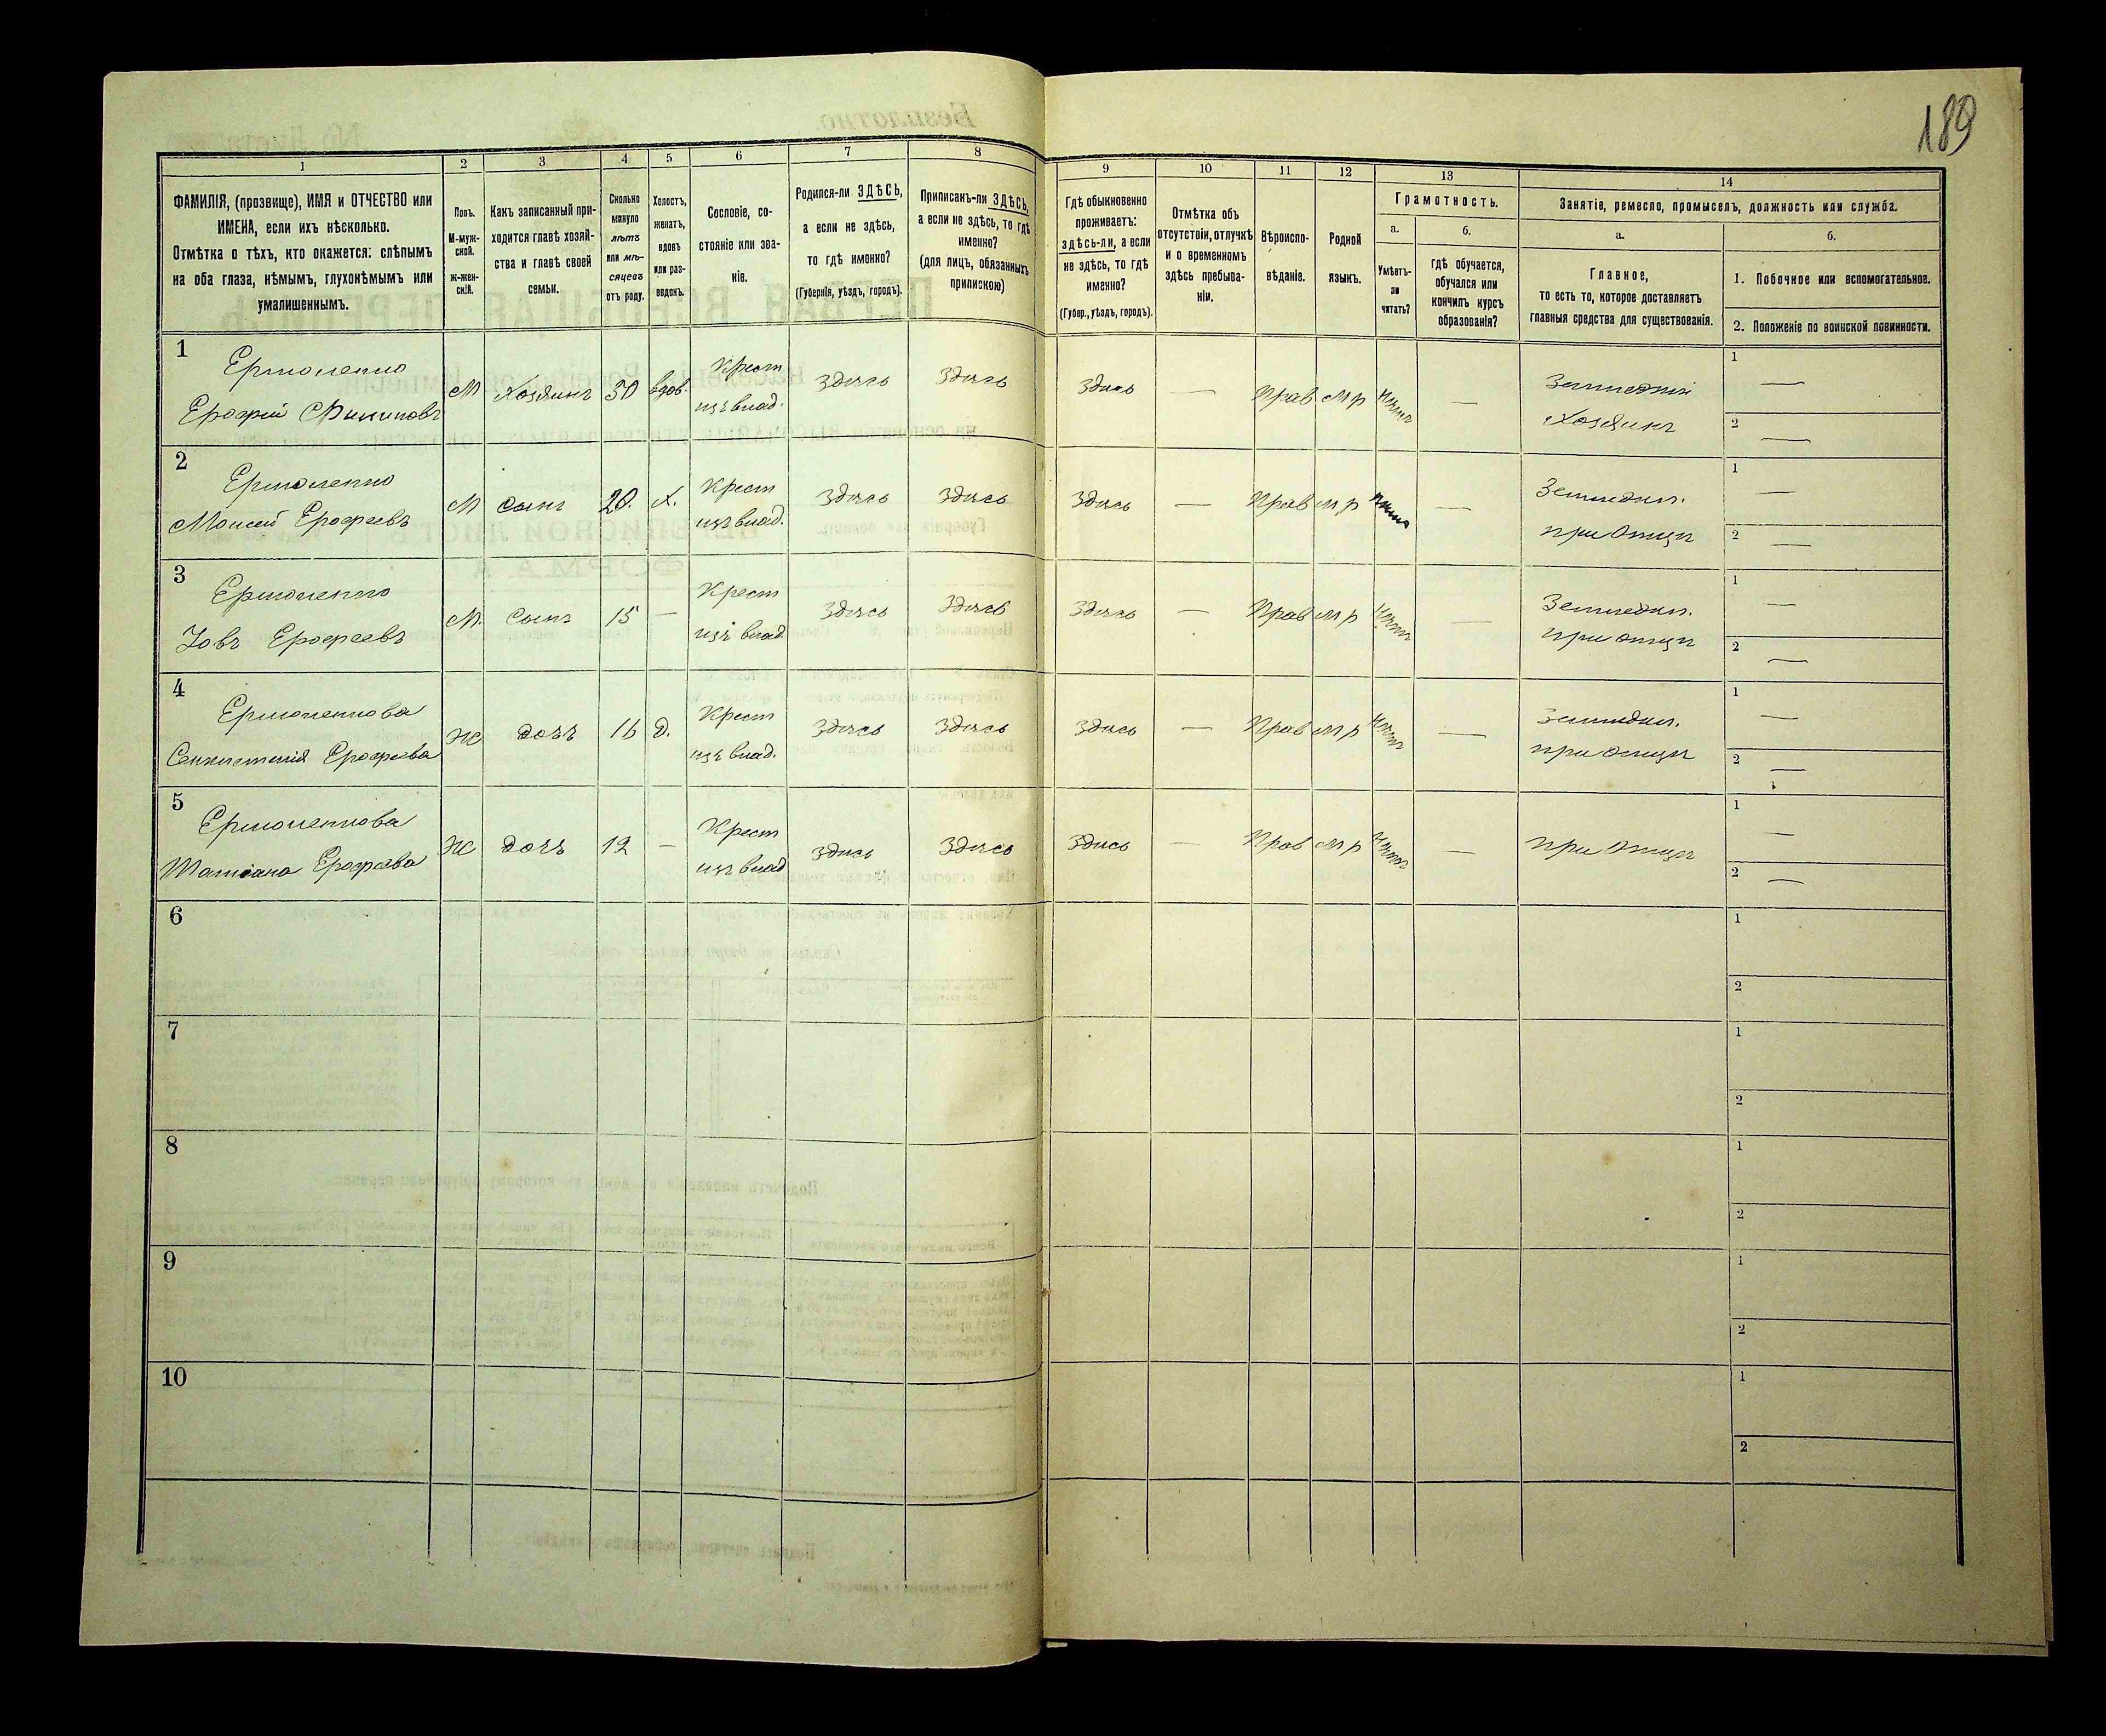 189
1
2
3
4
5
6
7
8
9
10
11
12
13
14
ФАМИЛІЯ, (прозвище), ИМЯ и ОТЧЕСТВО или
ИМЕНА, если ихъ нѣсколько.
Отмѣтка о тѣхъ, кто окажется: слѣпымъ
на оба глаза, нѣмымъ, глухонѣмымъ или
умалишеннымъ.
Полъ.
М-муж-
ской.
ж-жен-
скій.
Какъ записанный при-
ходится главѣ хозяй-
ства и главѣ своей
семьи.
Сколько
минуло
лѣтъ
или мѣ-
сяцевъ
отъ роду.
Холостъ,
женатъ,
вдовъ
или раз-
веденъ.
Сословіе, со-
стояніе или зва-
ніе.
Родился-ли ЗДѢСЬ,
а если не здѣсь,
то гдѣ именно?
(Губернія, уѣздъ, городъ).
Приписанъ-ли ЗДѢСЬ,
а если не здѣсь, то гдѣ
именно?
(для лицъ, обязанныхъ
припискою)
Гдѣ обыкновенно
проживаетъ:
здѣсь-ли, а если
не здѣсь, то гдѣ
именно?
(Губер., уѣздъ, городъ).
Отмѣтка объ
отсутствіи, отлучкѣ
и о временномъ
здѣсь пребыва-
ніи.
Вѣроиспо-
вѣданіе.
Родной
языкъ.
Грамотность.
а.
Умѣетъ-
ли
читать?
б.
гдѣ обучается,
обучался или
кончилъ курсъ
образованія?
Занятіе, ремесло, промыселъ, должность или служба.
а.
Главное,
то есть то, которое доставляетъ
главныя средства для существованія.
б.
1. Побочное или вспомогательное.
2. Положеніе по воинской повинности.
1
Ермоленко
Ерофей Филиповъ
М
Хозяинъ
50
вдов.
Крест
изъ влад.
Здѣсь
Здѣсь
Здѣсь
—
Прав
м р
Нѣтъ
—
Земледѣлій
Хозяинъ
1 —
2 —
2
Ермоленко
Моисей Ерофеевъ
М
Сынъ
20.
Х.
Крест
изъ влад.
Здѣсь
Здѣсь
Здѣсь
—
Прав
м р
—
Земледѣл.
при Отцѣ
1 —
2 —
3
Ермоленко
Іовъ Ерофеевъ
М.
Сынъ
15
—
Крест
изъ влад
Здѣсь
Здѣсь
Здѣсь
—
Прав
м р
Нѣтъ
—
Земледѣл.
при отцѣ
1 —
2 —
4
Ермоленкова
Ерофеева
Ж
дочь
16
д.
Крест
изъ влад.
Здѣсь
Здѣсь
Здѣсь
—
Прав
м р
Нѣтъ
—
Земледѣл.
при отцѣ
1 —
2 —
5
Ермоленкова
Татіана Ерофеева
Ж
дочь
12
—
Крест
изъ влад
Здѣсь
Здѣсь
Здѣсь
—
Прав
м р
Нѣтъ
—
при Отцѣ
1 —
2 —
6
1
2
7
1
2
8
1
2
9
1
2
10
1
2